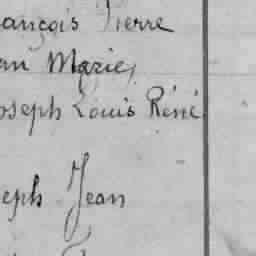 ançois Pierre
an Marie,
oseph Louis Réné
eph Jean